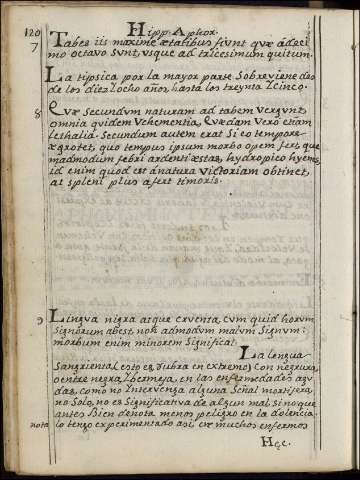 120 Hipp. Aphor.
7 Tabes iis maxime ætatibus fiunt quæ a deci
mo octavo sunt, usque ad tricesimum quitum.
La tipsica por la mayor parte Sobreviene des
de los diez locho anos, hasta los treynta i cinco.
8 Quæ Secundum naturam ad tabem vergunt
omnia quidem Vehementia, Quædam Vero etiam
lesthalia. Secundum autem erat Si eo tempore
ægrotet, quo tempus ipsum morbo opem fert, que
madmodum febri ardenti æstas, hydropico hyems,
id enim quod est a natura victoriam obtinet,
at spleni plus afert timoris.
9 Lingua nigra atque cruenta, cum quid horum
signorum abest, non admodum malum Signum:
morbum enim minorem Significat.
La lengua
Sangrienta (esto es rubra en extremo) con negrura,
o entre negra i bermeja, en las enfermedades agu
das, como no intervenga alguna Señal mortifera,
no Solo, no es Significativa de algun mal, sino que
antes Bien denota menos peligro en la dolencia.
nota lo tengo experimentado asi en muchos enfermos
Hęc.